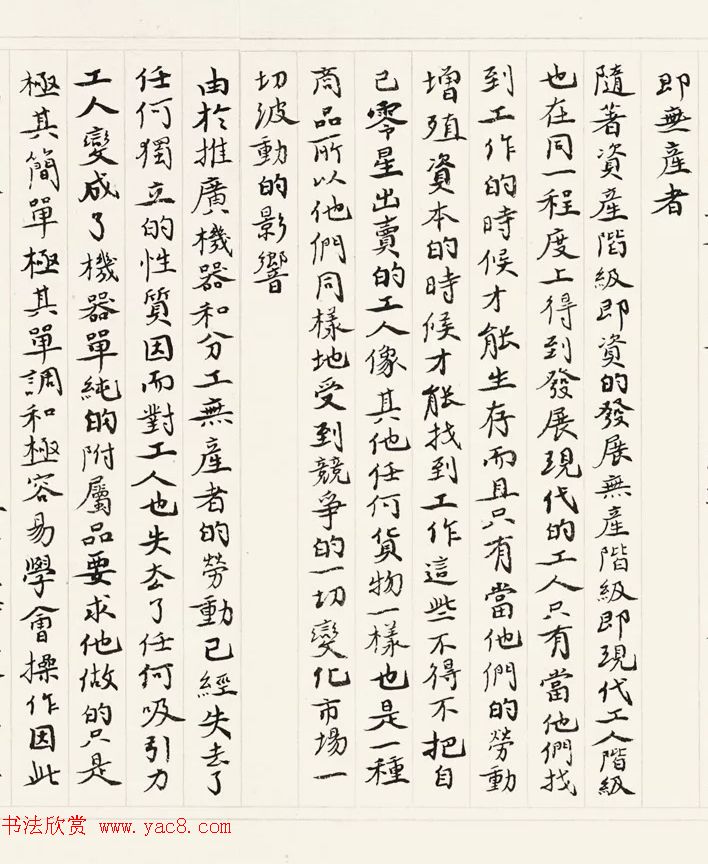 即無產者
隨著資產階級即資的發展無產階級即現代工人階級
也在同一程度上得到發展現代的工人只有當他們找
到工作的時候才能生存而且只有當他們的勞動
增殖資本的時候才能找到工作這些不得不把自
己零星出賣的工人像其他任何貨物一樣也是一種
商品所以他們同樣地受到競爭的一切變化市場一
切波動的影響
由於推廣機器和分工無產者的勞動已經失去了
任何獨立的性質因而對工人也失去了任何吸引力
工人變成了機器單純的附屬品要求他做的只是
極其簡單極其單調和極容易學會操作因此
书法欣赏 www.yac8.com